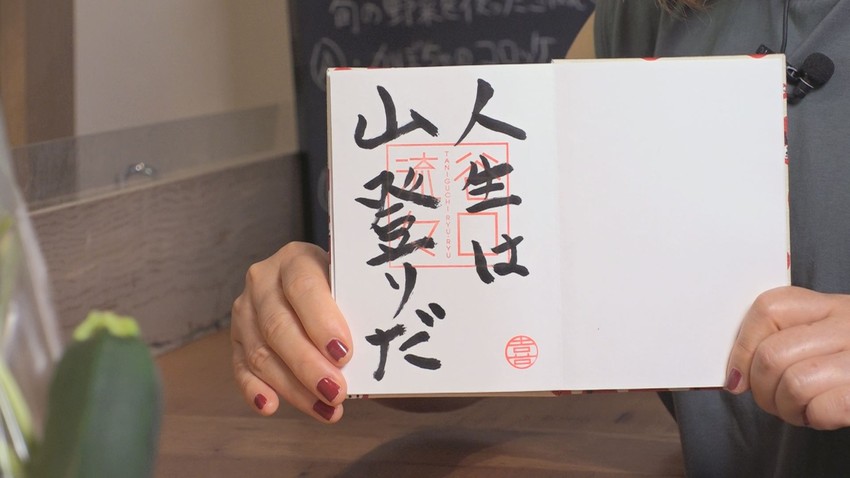 旬の野菜を使った
人生は
山登りだ
谷口
流々
TANIGUCHI RYU-RYU
喜